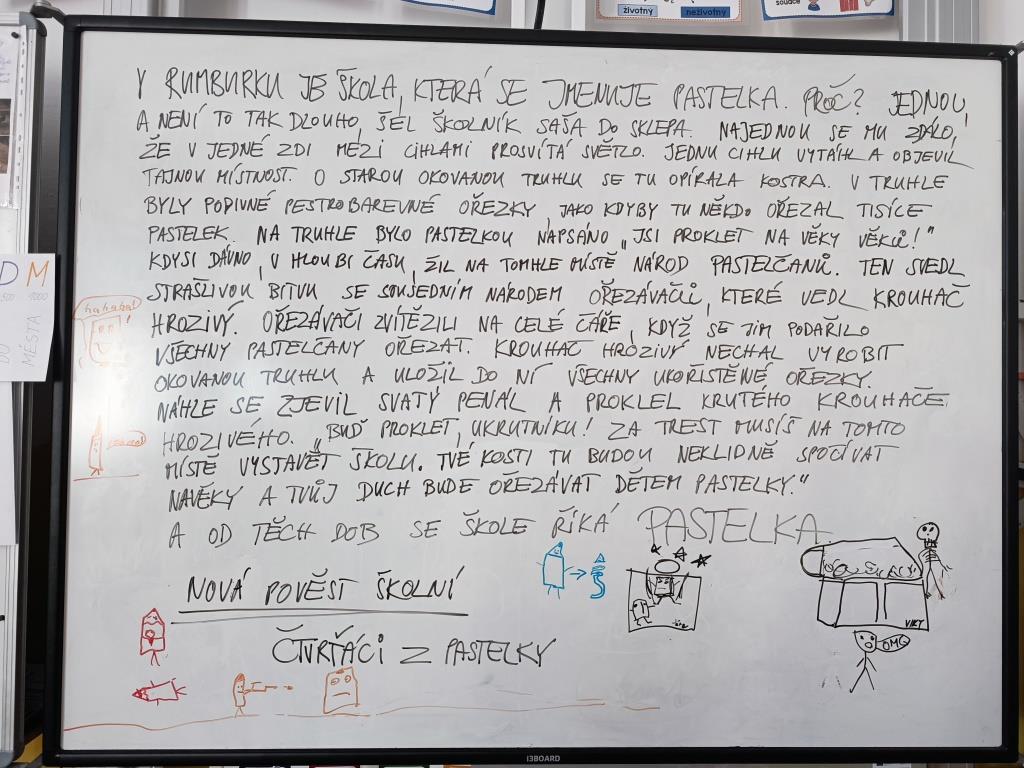 životný
neživotný
V RUMBURKU JE ŠKOLA, KTERÁ SE JMENUJE PASTELKA. PROČ? JEDNOU,
A NENÍ TO TAK DLOUHO, ŠEL ŠKOLNÍK SAŠA DO SKLEPA. NAJEDNOU SE MU ZDÁLO,
ŽE V JEDNÉ ZDI MEZI CIHLAMI PROSVÍTÁ SVĚTLO. JEDNU CIHLU VYTÁHL A OBJEVIL
TAJNOU MÍSTNOST. O STAROU OKOVANOU TRUHLU SE TU OPÍRALA KOSTRA. V TRUHLE
BYLY PODIVNÉ PESTROBAREVNÉ OŘEZKY, JAKO KDYBY TU NĚKDO OŘEZAL TISÍCE
PASTELEK. NA TRUHLE BYLO PASTELKOU NAPSÁNO „JSI PROKLET NA VĚKY VĚKŮ!"
KDYSI DÁVNO, V HLOUBI ČASU, ŽIL NA TOMHLE MÍSTĚ NÁROD PASTELČANŮ. TEN SVEDL
STRAŠLIVOU BITVU SE SOUSEDNÍM NÁRODEM OŘEZÁVAČŮ, KTERÉ VEDL KROUHAČ
HROZIVÝ. OŘEZÁVAČI ZVÍTĚZILI NA CELÉ ČÁŘE, KDYŽ SE JIM PODAŘILO
VŠECHNY PASTELČANY OŘEZAT. KROUHAČ HROZIVÝ NECHAL VYROBIT
OKOVANOU TRUHLU A ULOŽIL DO NÍ VŠECHNY UKOŘISTĚNÉ OŘEZKY.
NÁHLE SE ZJEVIL SVATÝ PENÁL A PROKLEL KRUTÉHO KROUHAČE
HROZIVÉHO. „BUĎ PROKLET, UKRUTNÍKU! ZA TREST MUSÍŠ NA TOMTO
MÍSTĚ VYSTAVĚT ŠKOLU. TVÉ KOSTI TU BUDOU NEKLIDNĚ SPOČÍVAT
NAVĚKY A TVŮJ DUCH BUDE OŘEZÁVAT DĚTEM PASTELKY."
A OD TĚCH DOB SE ŠKOLE ŘÍKÁ PASTELKA.
NOVÁ POVĚST ŠKOLNÍ
ČTVRŤÁCI Z PASTELKY
hahaha!
D M
1000
MĚSTA
VIKY
OMG
I3BOARD